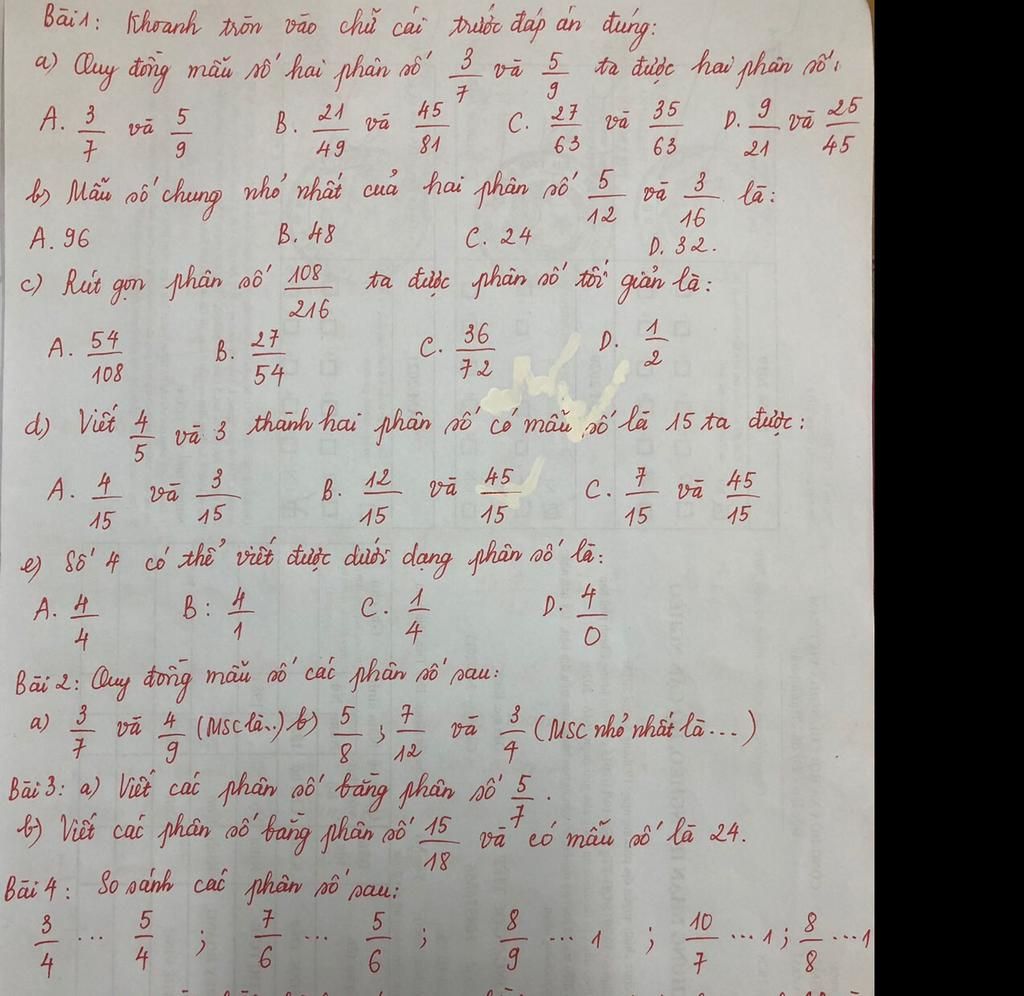 Bài 1: Khoanh tròn vào chữ cái trước đáp án đúng:
a) Quy đồng mẫu số hai phân số 3/7 và 5/9 ta được hai phân số:
A. 3/7 và 5/9 B. 21/49 và 45/81 C. 27/63 và 35/63 D. 9/21 và 25/45
b) Mẫu số chung nhỏ nhất của hai phân số 5/12 và 3/16 là:
A. 96 B. 48 C. 24 D. 32.
c) Rút gọn phân số 108/216 ta được phân số tối giản là:
A. 54/108 B. 27/54 C. 36/72 D. 1/2
d) Viết 4/5 và 3 thành hai phân số có mẫu số là 15 ta được:
A. 4/15 và 3/15 B. 12/15 và 45/15 C. 7/15 và 45/15
e) Số 4 có thể viết được dưới dạng phân số là:
A. 4/4 B: 4/1 C. 1/4 D. 4/0
Bài 2: Quy đồng mẫu số các phân số sau:
a) 3/7 và 4/9 (MSC là..) b) 5/8 ; 7/12 và 3/4 (MSC nhỏ nhất là...)
Bài 3: a) Viết các phân số bằng phân số 5/7.
b) Viết các phân số bằng phân số 15/18 và có mẫu số là 24.
Bài 4: So sánh các phân số sau:
3/4 ... 5/4 ; 7/6 ... 5/6 ; 8/9 ... 1 ; 10/7 ... 1 ; 8/8 ... 1